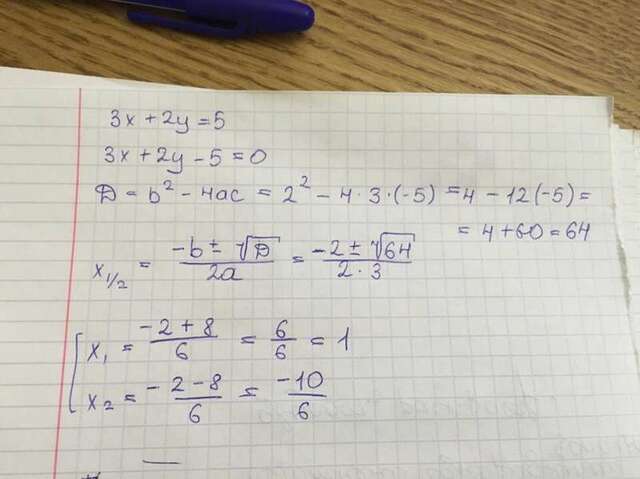 3x + 2y = 5
3x + 2y - 5 = 0
Д = b² - 4ac = 2² - 4 · 3 · (-5) = 4 - 12(-5) =
= 4 + 60 = 64
x₁/₂ = (-b ± √Д)/(2a) = (-2 ± √64)/(2 · 3)
x₁ = (-2 + 8)/6 = 6/6 = 1
x₂ = (-2 - 8)/6 = (-10)/6